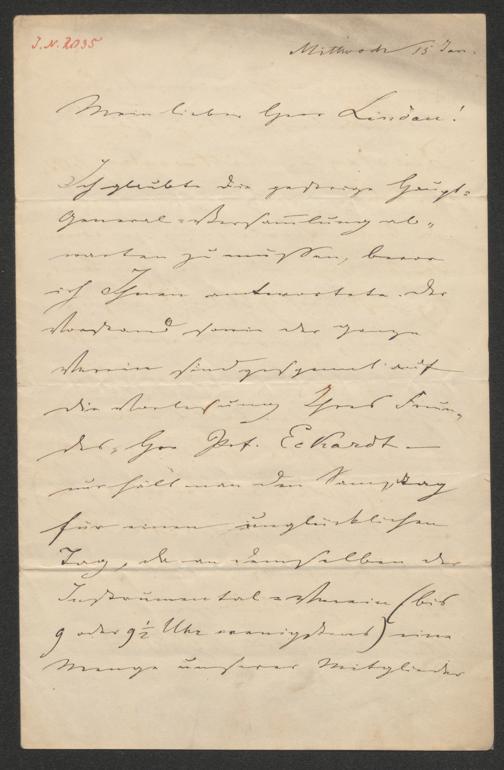 J.N. 2035
Mittwoch 15 Jan.
Mein lieber Herr Lindau!
Ich glaubte die gestrige Haupt-
General-Versammlung ab-
warten zu müssen, bevor
ich Ihnen antwortete. Der
Vorstand sowie der ganze
Verein sind gespannt auf
die Vorlesung Ihres Freun-
des, Herr Prof. Eckardt –
nur hält man den Samstag
für einen unglücklichen
Tag, da an demselben der
Instrumental-Verein (bis
9 oder 9½ Uhr wenigstens) eine
Menge unserer Mitglieder